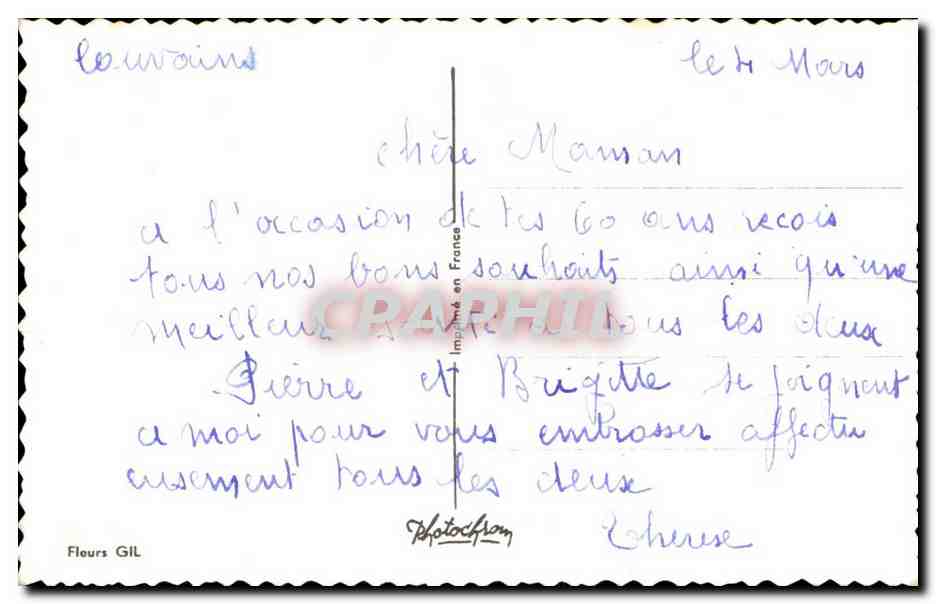 Louvains le 4 Mars
chère Maman
a l'occasion de tes 60 ans recois
tous nos bons souhaits ainsi qu'une
meilleur santé a tous les deux
Pierre et Brigitte se joignent
a moi pour vous embrasser affectu
eusement tous les deux
Therese
Imprimé en France
CPAPHIL
Photochrom
Fleurs GIL